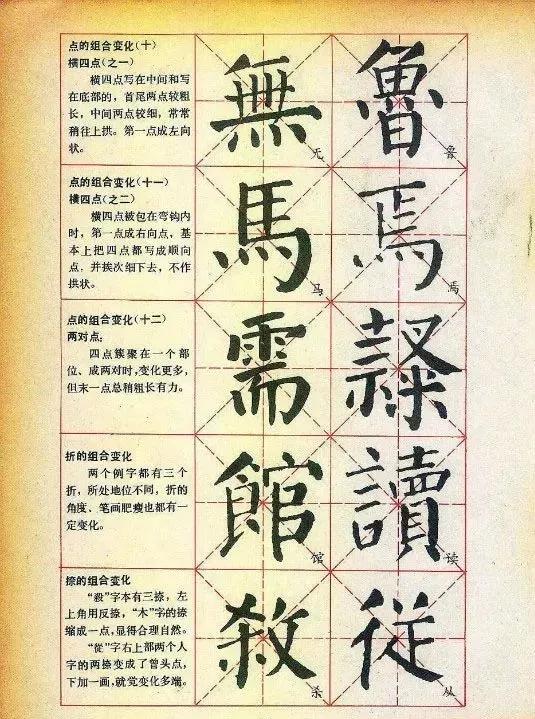 点的组合变化(十)
横四点(之一)
横四点写在中间和写
在底部的，首尾两点较粗
长，中间两点较细，常常
稍往上拱。第一点成左向
状。
無 无
魯 鲁
点的组合变化(十一)
横四点(之二)
横四点被包在弯钩内
时，第一点成右向点，基
本上把四点都写成顺向
点，并挨次细下去，不作
拱状。
馬 马
焉 焉
点的组合变化(十二)
两对点：
四点簇聚在一个部
位、成两对时，变化更多，
但末一点总稍粗长有力。
需
折的组合变化
两个例字都有三个
折，所处地位不同，折的
角度、笔画肥瘦也都有一
定变化。
館 馆
讀 读
捺的组合变化
“殺”字本有三捺，左
上角用反捺，“木”字的捺
缩成一点，显得合理自然。
“從”字右上部两个人
字的两捺变成了曾头点，
下加一画，就觉变化多端。
殺 杀
從 从